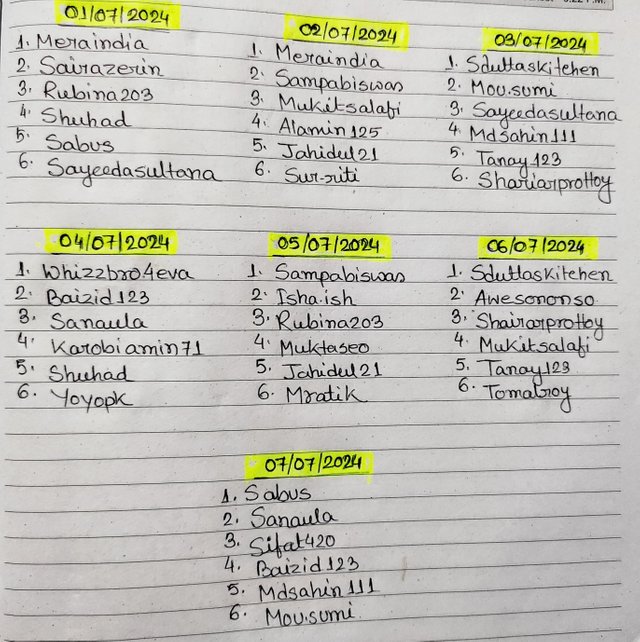 01/07/2024
1. Meraindia
2. Sairazerin
3. Rubina203
4. Shuhad
5. Sabus
6. Sayeedasultana
02/07/2024
1. Meraindia
2. Sampabiswas
3. Mukitsalafi
4. Alamin125
5. Jahidul21
6. Sur-riti
03/07/2024
1. Sduttaskitchen
2. Mou.sumi
3. Sayeedasultana
4. Mdsahin111
5. Tanay123
6. Shariarprottoy
04/07/2024
1. Whizzbro4eva
2. Baizid123
3. Sanaula
4. Karobiamin71
5. Shuhad
6. Yoyopk
05/07/2024
1. Sampabiswas
2. Isha.ish
3. Rubina203
4. Muktaseo
5. Jahidul21
6. Mratik
06/07/2024
1. Sduttaskitchen
2. Awesononso
3. Shairarprottoy
4. Mukitsalafi
5. Tanay123
6. Tomalroy
07/07/2024
1. Sabus
2. Sanaula
3. Sifat420
4. Baizid123
5. Mdsahin111
6. Mou.sumi